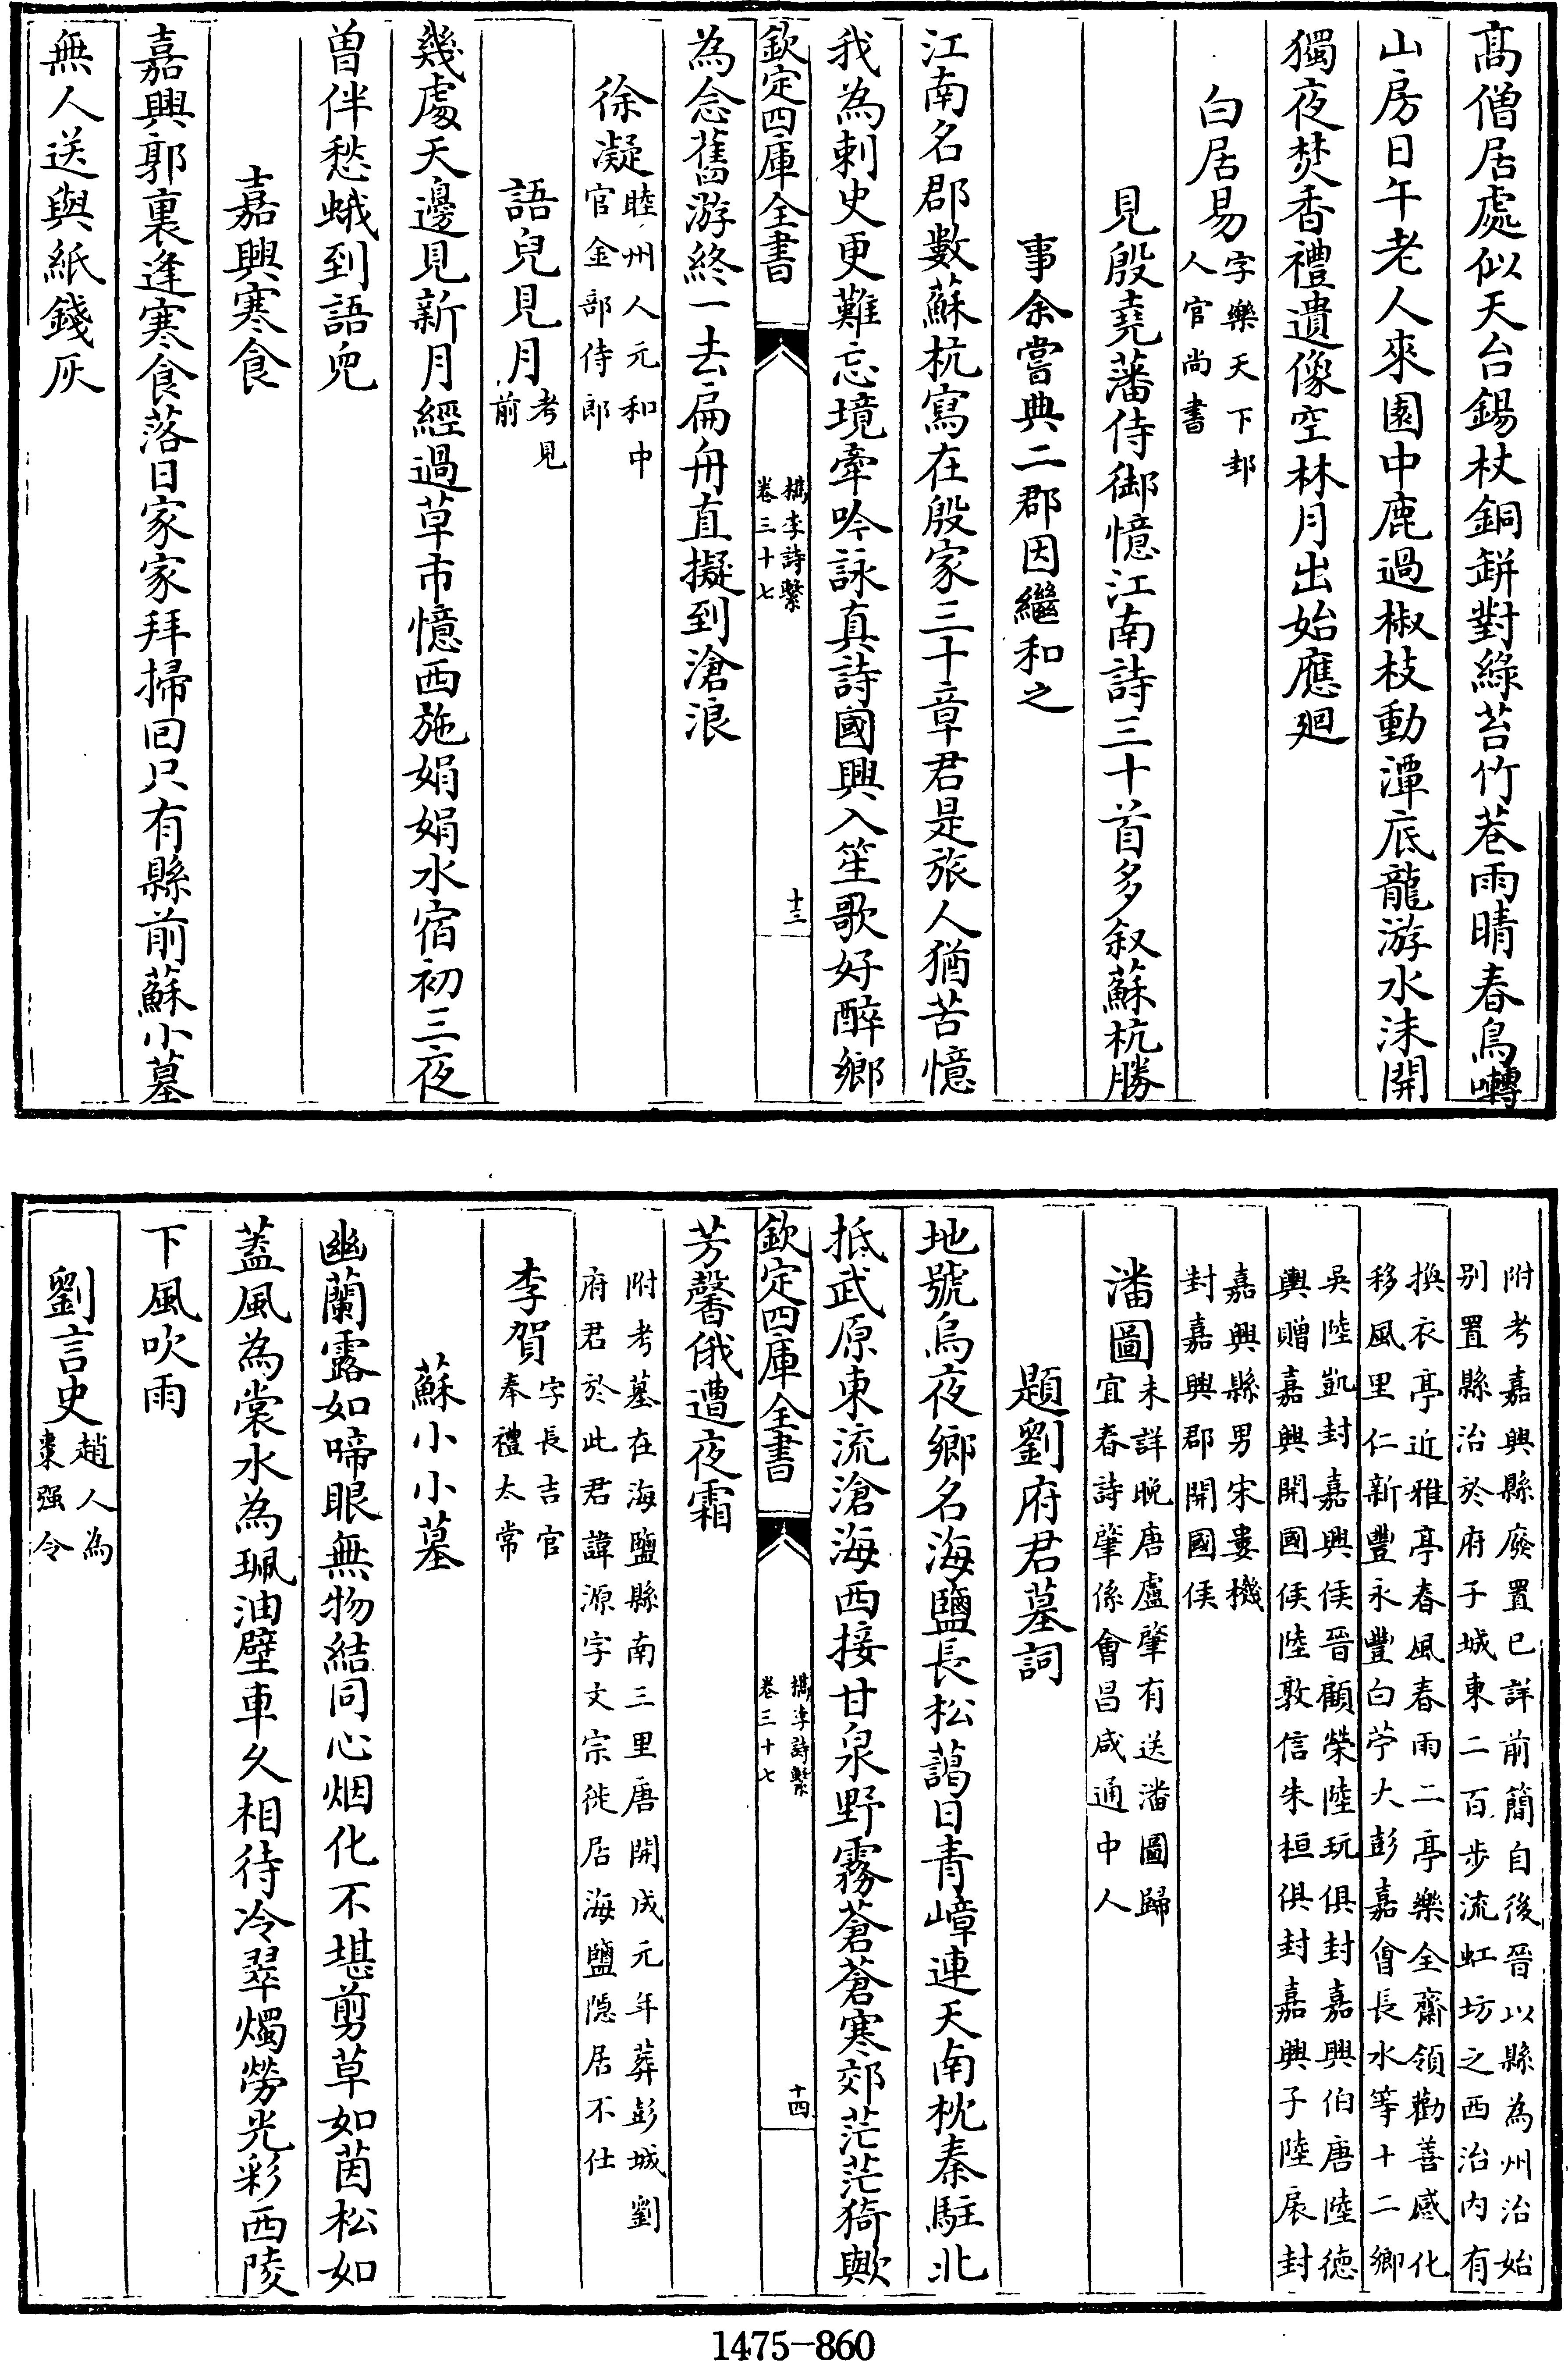 高僧居處似天台錫杖銅缾對綠苔竹巷雨晴春鳥囀
山房日午老人來園中鹿過椒枝動潭底龍游水沫開
獨夜焚香禮遺像空林月出始應廻
白居易字樂天下邽
人官尚書
見殷堯藩侍御憶江南詩三十首多叙蘇杭勝
事余嘗典二郡因繼和之
江南名郡數蘇杭寫在殷家三十章君是旅人猶苦憶
我為刺史更難忘境牽吟詠真詩國興入笙歌好醉鄉
欽定四庫全書
檇李詩繫
卷三十七
十三
為念舊游終一去扁舟直擬到滄浪
徐凝睦州人元和中
官金部侍郎
語兒見月考見
前
幾處天邊見新月經過草市憶西施娟娟水宿初三夜
曾伴愁蛾到語兒
嘉興寒食
嘉興郭裏逢寒食落日家家拜掃回只有縣前蘇小墓
無人送與紙錢灰
附考嘉興縣廢置已詳前簡自後晉以縣為州治始
别置縣治於府子城東二百步流虹坊之西治内有
換衣亭近雅亭春風春雨二亭樂全齋領勸善感化
移風里仁新豐永豐白苧大彭嘉會長水等十二鄉
吳陸凱封嘉興侯晉顧榮陸玩俱封嘉興伯唐陸德
輿贈嘉興開國侯陸敦信朱桓俱封嘉興子陸扆封
嘉興縣男宋婁機
封嘉興郡開國侯
潘圖未詳晚唐盧肇有送潘圖歸
宜春詩肇係會昌咸通中人
題劉府君墓詞
地號烏夜鄉名海鹽長松藹日青嶂連天南枕秦駐北
抵武原東流滄海西接甘泉野霧蒼蒼寒郊茫茫猗歟
欽定四庫全書
檇李詩繫
卷三十七
十四
芳馨俄遭夜霜
附考墓在海鹽縣南三里唐開成元年葬彭城劉
府君於此君諱源字文宗徙居海鹽隐居不仕
李賀字長吉官
奉禮太常
蘇小小墓
幽蘭露如啼眼無物結同心烟化不堪剪草如茵松如
蓋風為裳水為珮油壁車久相待冷翠燭勞光彩西陵
下風吹雨
劉言史趙人為
棗强令
1475-860